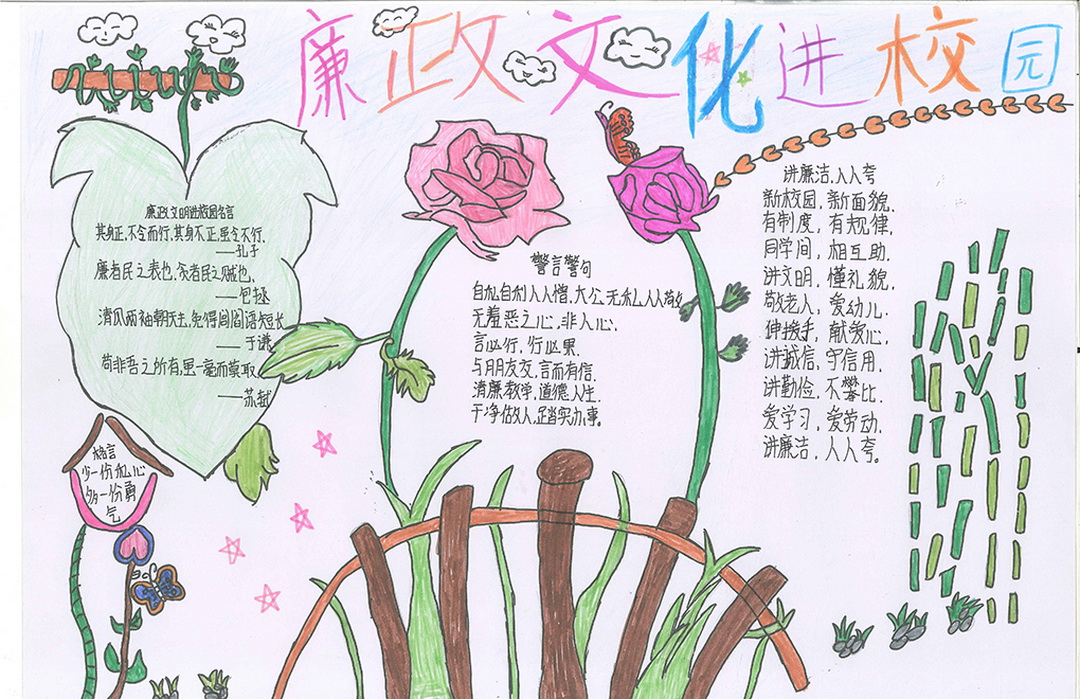 廉政文化进校园
廉政文明进校园名言
其身正,不令而行,其身不正,虽令不行.
——孔子
廉者民之表也,贪者民之贼也,
——包拯
清风两袖朝天去,免得闾阎话短长
——于谦
苟非吾之所有,虽一毫而莫取
——苏轼
格言
少一份私心
多一份勇
气
警言警句
自私自利人人憎,大公无私人人敬
无羞恶之心,非人心,
言必行,行必果.
与朋友交,言而有信.
清廉教学,道德人生.
干净做人,踏实办事。
讲廉洁,人人夸
新校园,新面貌.
有制度,有规律.
同学间,相互助.
讲文明,懂礼貌.
敬老人,爱幼儿.
伸援手,献爱心.
讲诚信,守信用.
讲勤俭,不攀比.
爱学习,爱劳动.
讲廉洁,人人夸。